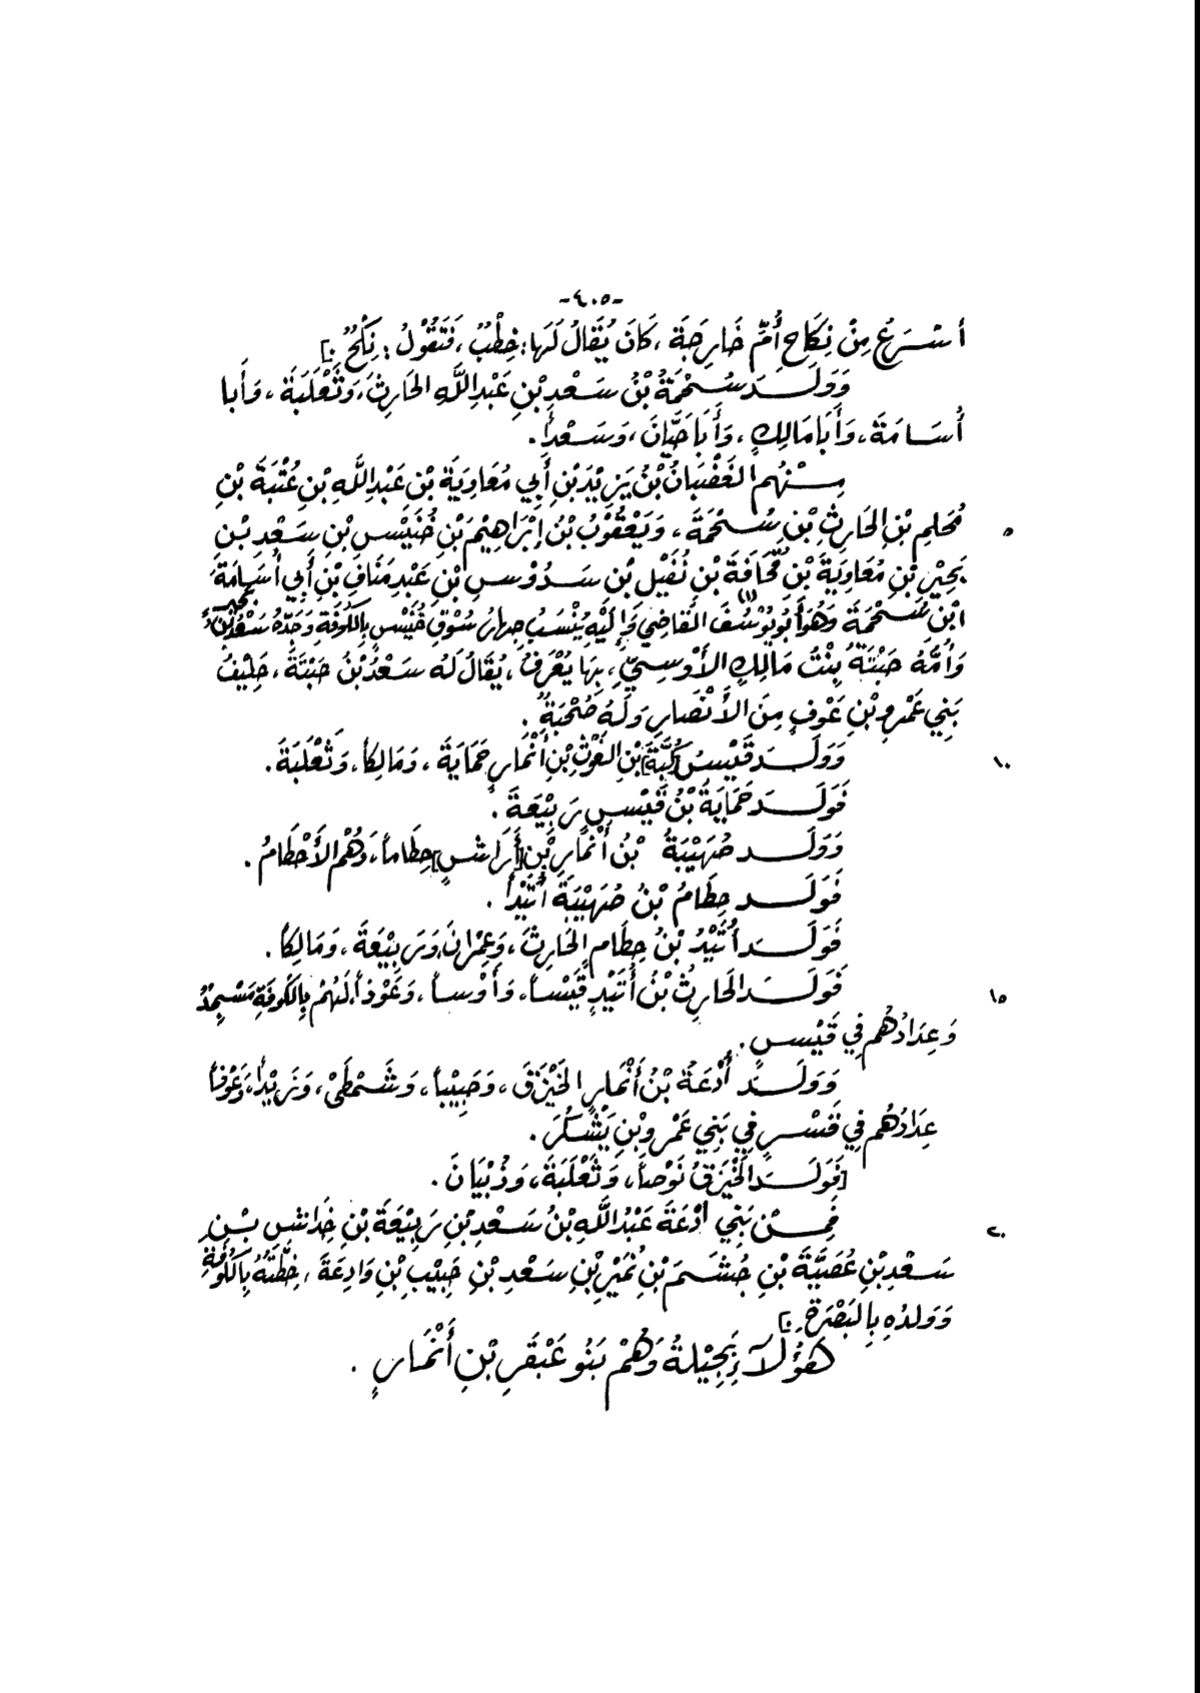 -٤٠٥-
أَسْرَعُ مِنْ نِكَاحِ أُمِّ خَارِجَةَ ، كَانَ يُقَالُ لَهَا: خِطْبٌ ، فَتَقُوْلُ : نِكْحٌ .]
وَوَلَدَ سُحْمَةُ بْنُ سَعْدِ بْنِ عَبْدِ اللَّهِ الحَارِثَ، وَثَعْلَبَةَ ، وَأَبا
أُسَامَةَ ، وَأَبَا مَالِكٍ ، وَأَبَا حَيَّانَ ، وَسَعْداً .
مِنْهُم الغَضْبَانُ بْنُ يَزِيْدَ بْنِ أَبِي مُعَاوِيَةَ بْنِ عَبْدِ اللَّهِ بْنِ عُتْبَةَ بْنِ
٥ مُحَلِّمِ بْنِ الحَارِثِ بْنِ سُحْمَةَ ، وَيَعْقُوْبُ بْنُ إِبْرَاهِيْمَ بْنِ خُنَيْسِ بْنِ سَعْدِ بْنِ
بَحِيْرِ بْنِ مُعَاوِيَةَ بْنِ قُحَافَةَ بْنِ نُفَيْلِ بْنِ سَدُوْسِ بْنِ عَبْدِ مَنَافِ بْنِ أَبِي أُسَامَةَ
ابْنِ سُحْمَةَ وَهُوَ أَبُو يُوْسُفَ القَاضِي (١) وَإِلَيْهِ يُنْسَبُ چهارْ سُوْقِ خُنَيْسٍ بِالكُوفَةِ وَجَدُّهُ سَعْدُ بْنُ بَحِيْرٍ
وَأُمُّهُ حَبْتَةُ بِنْتُ مَالِكٍ الأَوْسِيِّ ، بِهَا يُعْرَفُ ، يُقَالُ لَهُ سَعْدُ بْنُ حَبْتَةَ ، حَلِيْفُ
بَنِي عَمْرِو بْنِ عَوْفٍ مِنَ الأَنْصَارِ وَلَهُ صُحْبَةٌ .
١٠ وَوَلَدَ قَيْسُ [كُبَّةَ] بْنِ الغَوْثِ بْنِ أَنْمَارٍ حَمَايَةَ ، وَمَالِكاً ، وَثَعْلَبَةَ .
فَوَلَدَ حَمَايَةُ بْنُ قَيْسٍ رَبِيْعَةَ .
وَوَلَدَ صُهَيْبَةُ بْنُ أَنْمَارِ بْنِ [أَرَاشٍ] حِطَاماً ، وَهُمُ الأَحْطَامُ .
فَوَلَدَ حِطَامُ بْنُ صُهَيْبَةَ أُتَيْداً .
فَوَلَدَ أُتَيْدُ بْنُ حِطَامٍ الحَارِثَ ، وَعِمْرَانَ وَرَبِيْعَةَ ، وَمَالِكاً .
١٥ فَوَلَدَ الحَارِثُ بْنُ أُتَيْدٍ قَيْساً ، وَأَوْساً ، وَعَوْذاً ، لَهُمْ بِالكُوفَةِ مَسْجِدٌ
وَعِدَادُهُم فِي قَيْسٍ .
وَوَلَدَ أُدْعَةُ بْنُ أَنْمَارٍ الخَيْزَقَ ، وَحَبِيْباً ، وَشَمْطَىْ ، وَزَيْداً ، وَعَوْفاً
عِدَادُهُم فِي قَسْرٍ فِي بَنِي عَمْرِو بْنِ يَشْكُرَ .
[فَوَلَدَ الخَيْزَقُ نَوْصاً ، وَثَعْلَبَةَ ، وَذُبْيَانَ .
٢٠ فَمِنْ بَنِي أُدْعَةَ عَبْدُ اللَّهِ بْنُ سَعْدِ بْنِ رَبِيْعَةَ بْنِ خِدَاشِ بْنِ
سَعْدِ بْنِ عُصَيَّةَ بْنِ جُشَمَ بْنِ نُمَيْرِ بْنِ سَعْدِ بْنِ حَبِيْبِ بْنِ وَادِعَةَ ، خِطَّتُهُ بِالكُوفَةِ
وَوَلدُهِ بِالبَصْرَةِ .]
هَؤُلَآءِ بَجِيْلَةُ وَهُمْ بَنُو عَبْقَرِ بْنِ أَنْمَارٍ .